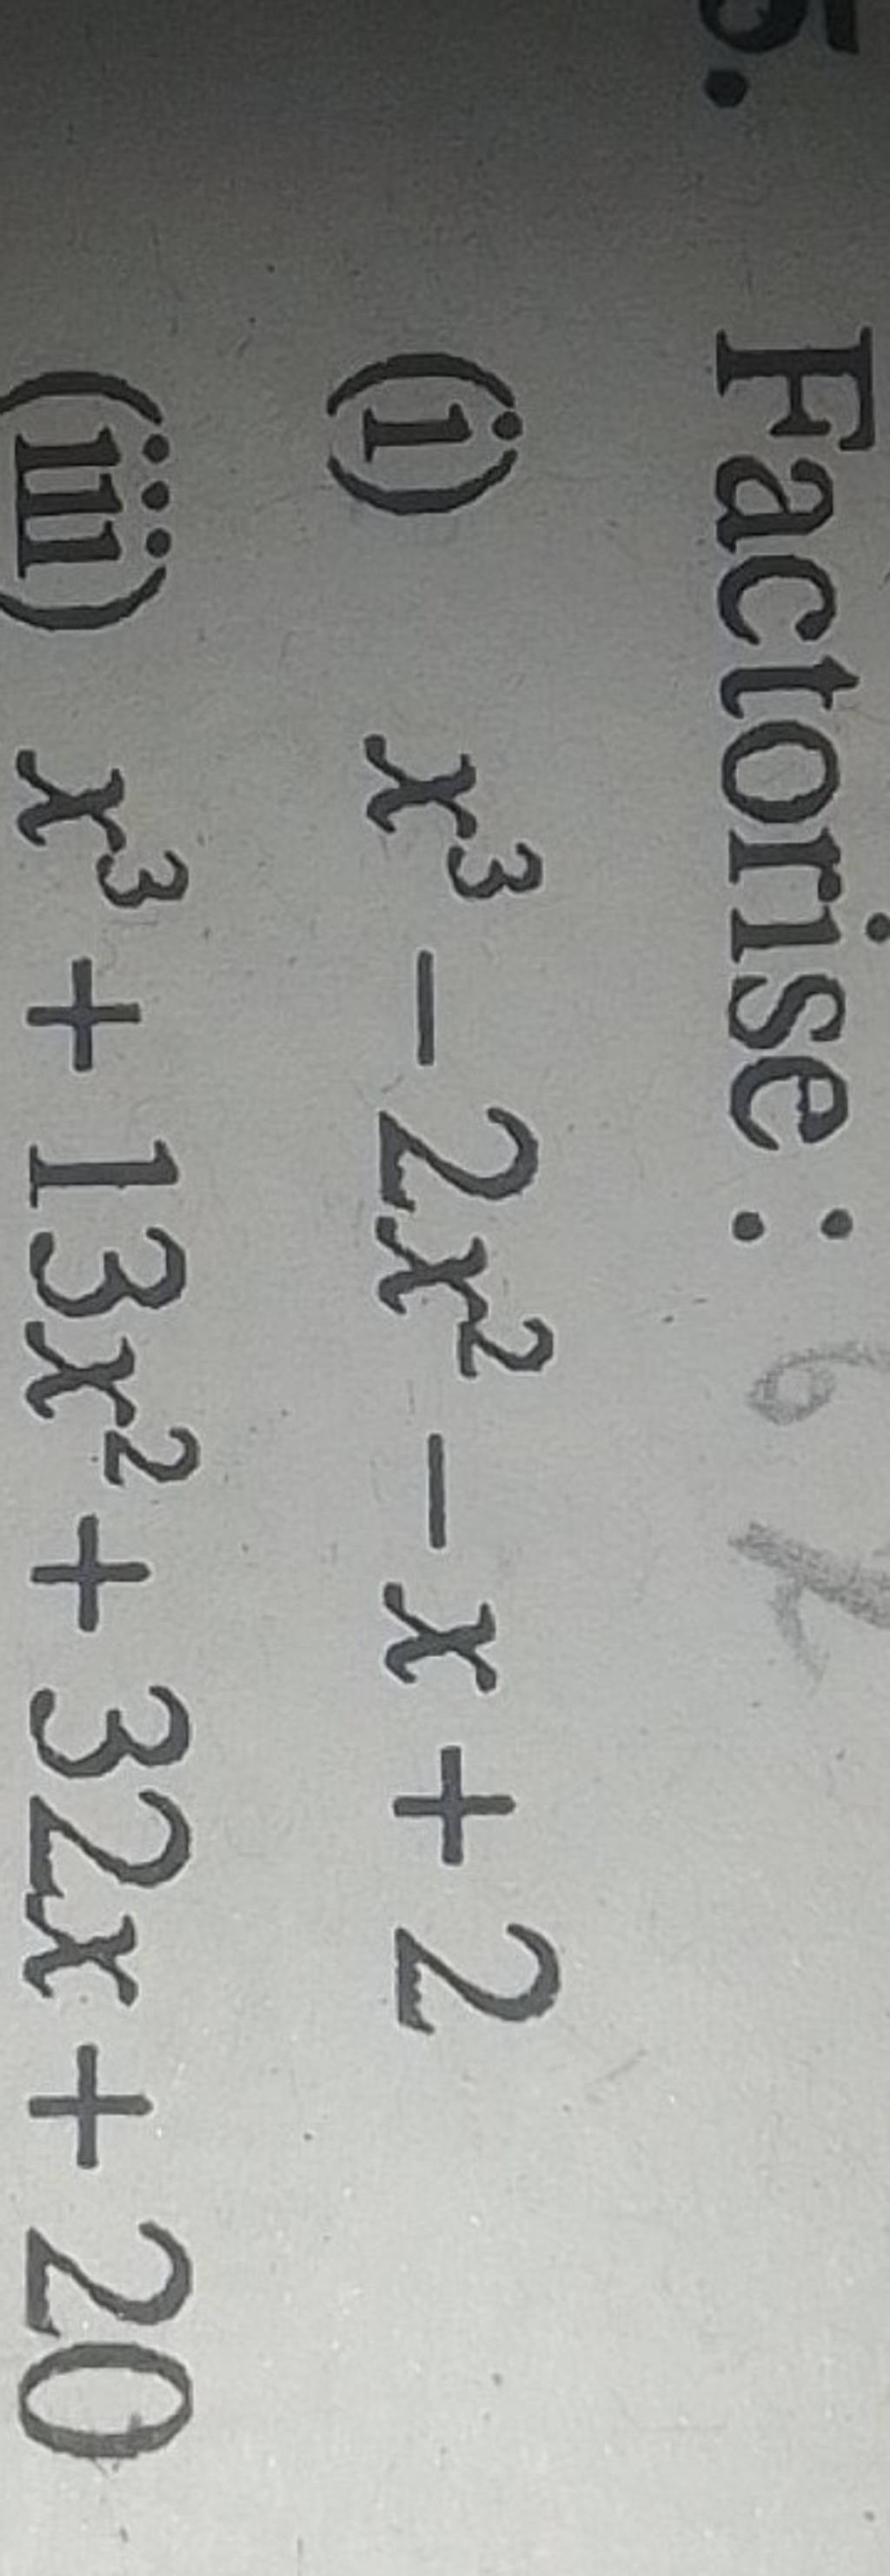 5. Factorise :
(i) x³ − 2x² − x + 2
(iii) x³ + 13x² + 32x + 20